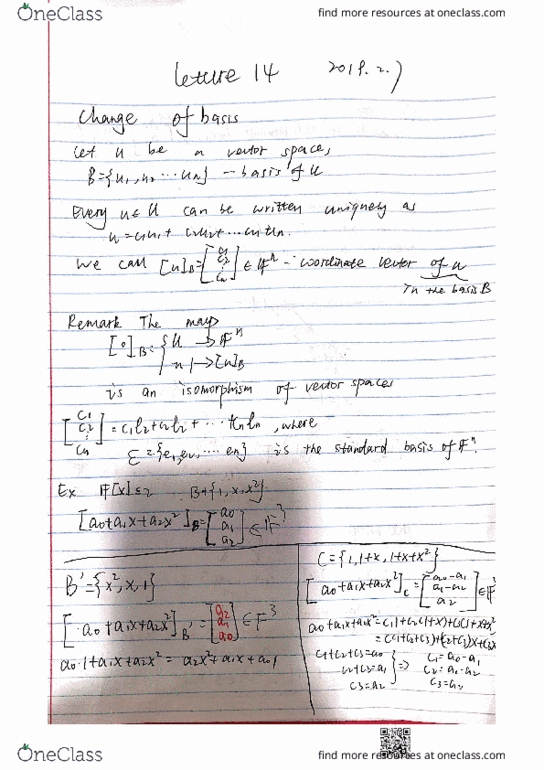 OneClass
find more resources at oneclass.com
lecture 14 2019.2.7
Change of basis
Let U be a vector space,
B={u1,u2 ... un} - basis of U
Every u∈U can be written uniquely as
u=c1u1+ c2u2+...cnun.
We call [u]B=[c1 c2 ⋮ cn] ∈ 𝔽^n - coordinate vector of u
In the basis B
Remark The map
[°]B: { U → 𝔽^n
u ↦ [u]B
is an isomorphism of vector spaces
[c1 c2 ⋮ cn] = c1e1+c2e2+ ... cnen, where
ℰ={e1,e2, ... en} is the standard basis of 𝔽^n.
Ex 𝔽[x]≤2 B={1,x,x²}
[a0+a1x+a2x²]B=[a0 a1 a2] ∈ 𝔽³
B'={x²,x,1}
[a0+a1x+a2x²]B'=[a2 a1 a0] ∈ 𝔽³
a0·1+a1x+a2x² = a2x²+a1x+a0·1
C={1,1+x,1+x+x²}
[a0+a1x+a2x²]C=[a0-a1 a1-a2 a2] ∈ 𝔽³
a0+a1x+a2x²=c1·1+c2(1+x)+c3(1+x+x²)
=(c1+c2+c3)+(c2+c3)x+c3x²
c1+c2+c3=a0
c2+c3=a1
c3=a2
⇒ c1=a0-a1
c2=a1-a2
c3=a2
OneClass
find more resources at oneclass.com